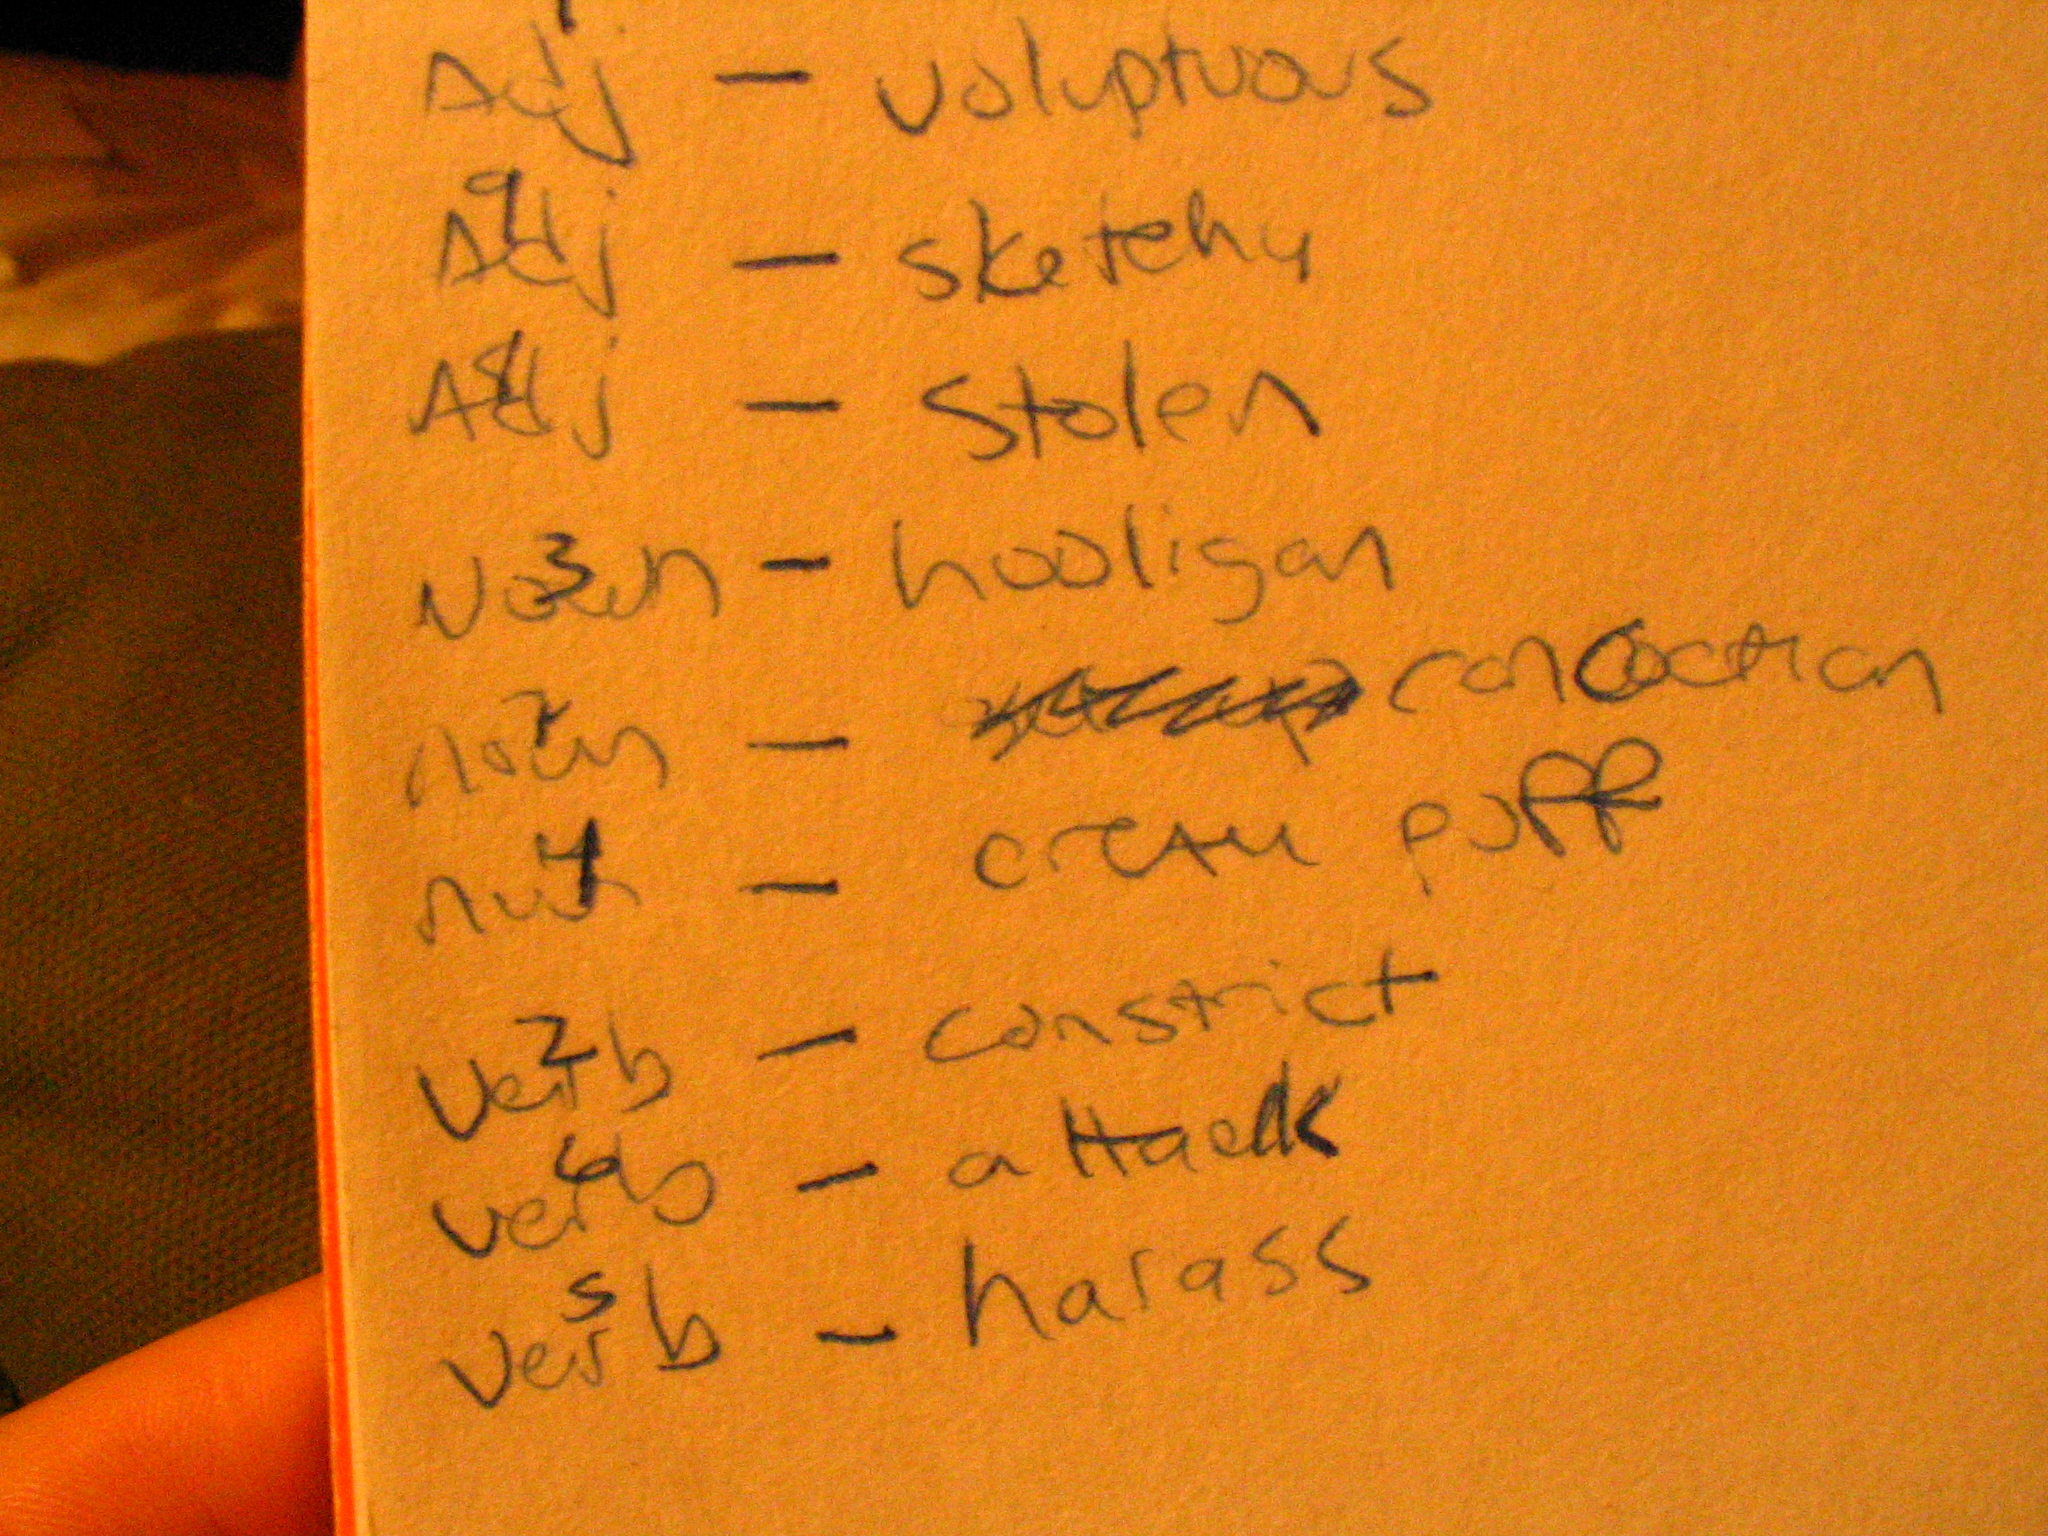 Adj - voluptuous
Adj - sketchy
Adj - stolen
Noun - hooligan
noun - concoction
noun - cream puff
verb - constrict
verb - attack
verb - harass